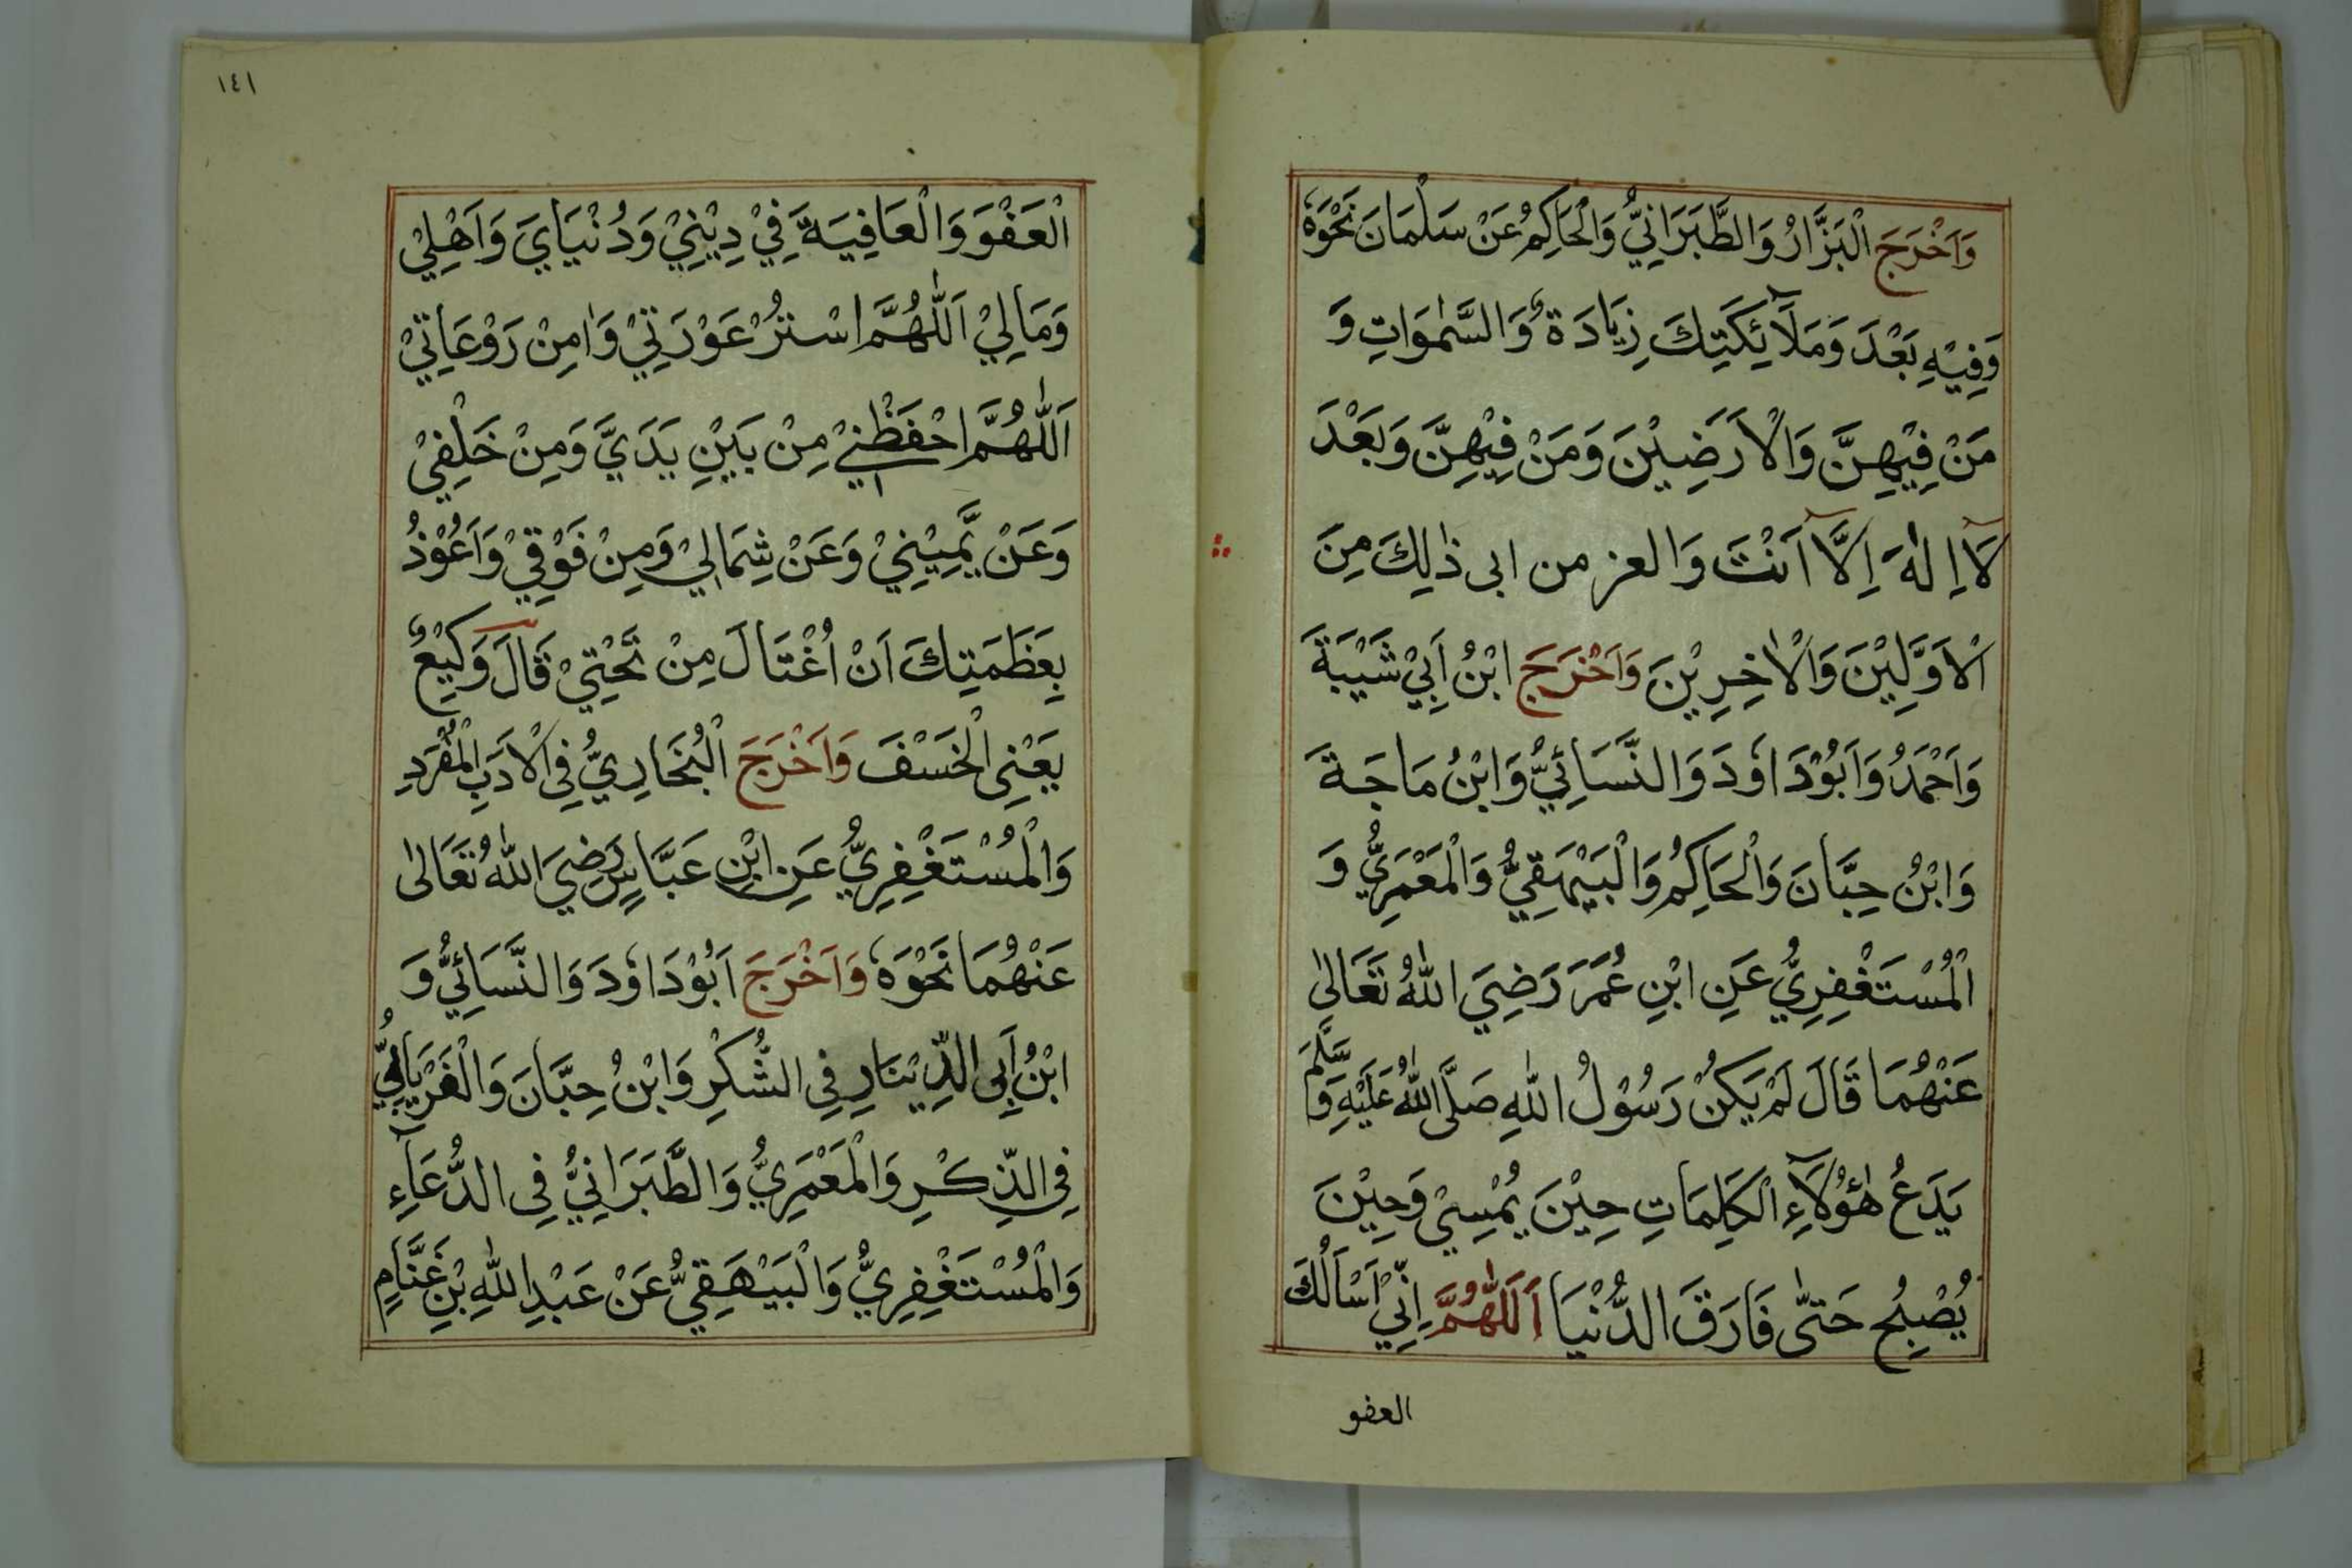 وَاَخْرَجَ الْبَزَّارُ وَالطَّبَرَانِيُّ وَالْحَاكِمُ عَنْ سَلْمَانَ نَحْوَهٗ
وَفِيْهِ بَعْدَ وَمَلَآئِكَتِكَ زِيَادَةٌ وَالسَّمٰوَاتِ وَ
مَنْ فِيْهِنَّ وَالْاَرَضِيْنَ وَمَنْ فِيْهِنَّ وَبَعْدَ
لَآ اِلٰهَ اِلَّآ اَنْتَ وَالعز من ابى ذٰلِكَ مِنَ
الْاَوَّلِيْنَ وَالْاٰخِرِيْنَ وَاَخْرَجَ ابْنُ اَبِيْ شَيْبَةَ
وَاَحْمَدُ وَاَبُوْدَاوٗدَ وَالنَّسَائِيُّ وَابْنُ مَاجَةَ
وَابْنُ حِبَّانَ وَالْحَاكِمُ وَالْبَيْهَقِيُّ وَالْمَعْمَرِيُّ وَ
الْمُسْتَغْفِرِيُّ عَنِ ابْنِ عُمَرَ رَضِيَ اللّٰهُ تَعَالٰى
عَنْهُمَا قَالَ لَمْ يَكُنْ رَسُوْلُ اللّٰهِ صَلَّى اللّٰهُ عَلَيْهِ وَسَلَّمَ
يَدَعُ هٰؤُلَآءِ الْكَلِمَاتِ حِيْنَ يُمْسِيْ وَحِيْنَ
يُصْبِحُ حَتّٰى فَارَقَ الدُّنْيَا اَللّٰهُمَّ اِنِّيْ اَسْاَلُكَ
العفو
١٤١
الْعَفْوَ وَالْعَافِيَةَ فِيْ دِيْنِيْ وَدُنْيَايَ وَاَهْلِيْ
وَمَالِيْ اَللّٰهُمَّ اسْتُرْ عَوْرَتِيْ وَاٰمِنْ رَوْعَاتِيْ
اَللّٰهُمَّ احْفَظْنِيْ مِنْ بَيْنِ يَدَيَّ وَمِنْ خَلْفِيْ
وَعَنْ يَّمِيْنِيْ وَعَنْ شِمَالِيْ وَمِنْ فَوْقِيْ وَاَعُوْذُ
بِعَظَمَتِكَ اَنْ اُغْتَالَ مِنْ تَحْتِيْ قَالَ وَكِيْعٌ
يَعْنِى الْخَسْفَ وَاَخْرَجَ الْبُخَارِيُّ فِى الْاَدَبِ الْمُفْرَدِ
وَالْمُسْتَغْفِرِيُّ عَنِ ابْنِ عَبَّاسٍ رَضِيَ اللّٰهُ تَعَالٰى
عَنْهُمَا نَحْوَهٗ وَاَخْرَجَ اَبُوْدَاوٗدَ وَالنَّسَائِيُّ وَ
ابْنُ اَبِى الدِّيْنَارِ فِى الشُّكْرِ وَابْنُ حِبَّانَ وَالْفَرْيَابِيُّ
فِى الذِّكْرِ وَالْمَعْمَرِيُّ وَالطَّبَرَانِيُّ فِى الدُّعَآءِ
وَالْمُسْتَغْفِرِيُّ وَالْبَيْهَقِيُّ عَنْ عَبْدِ اللّٰهِ بْنِ غَنَّامٍ